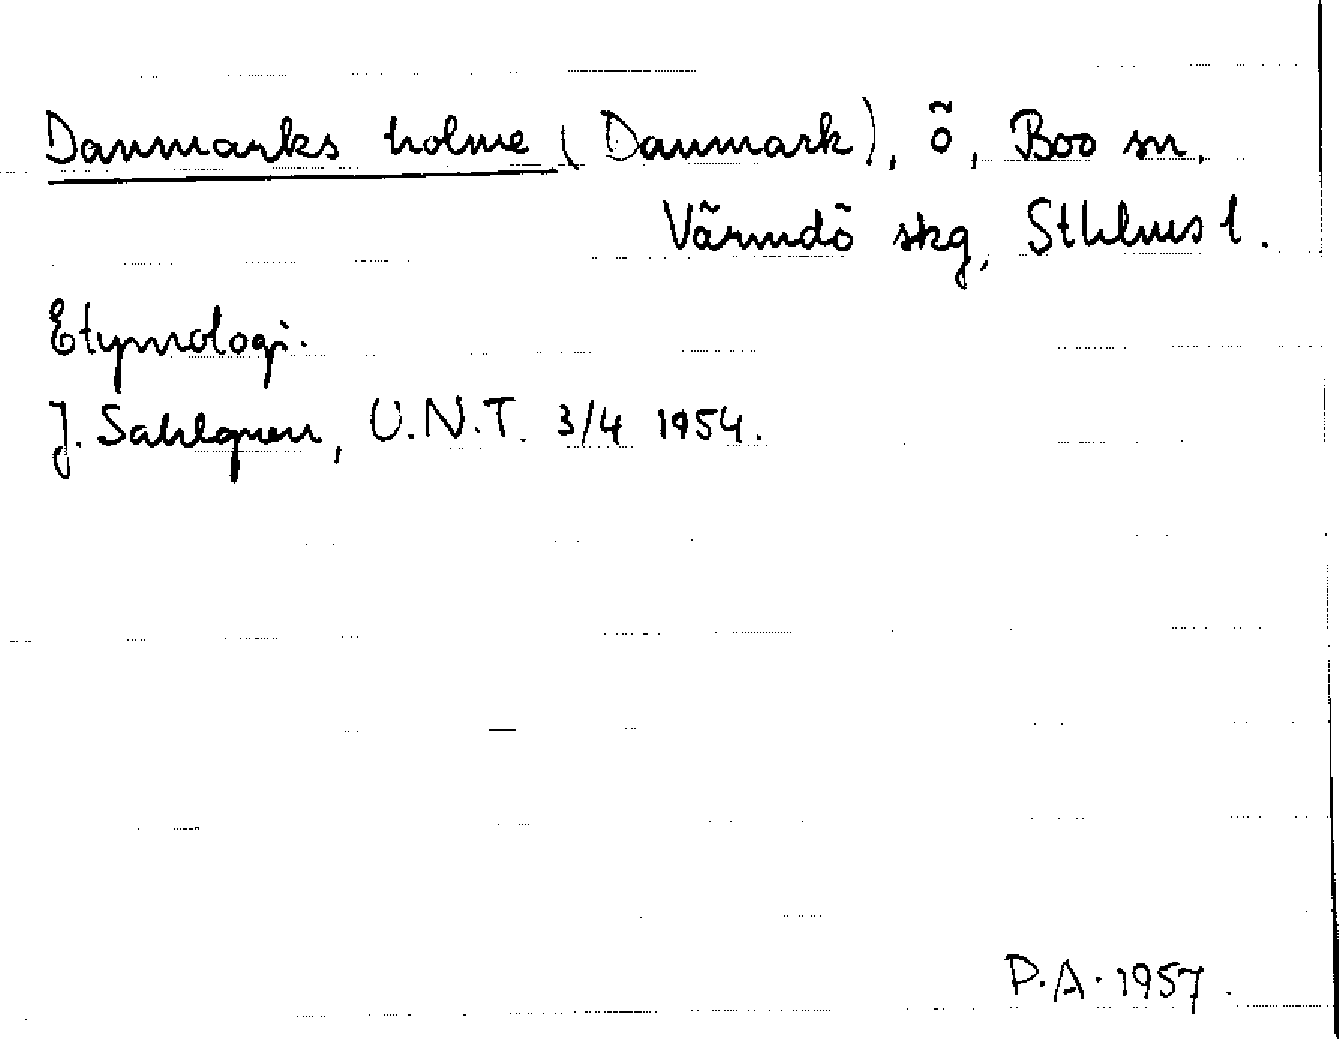 Danmarks holme (Danmark), ö, Boo sn,
Värmdö skg, Sthlms l.
Etymologi.
J. Sahlgren, U.N.T. 3/4 1954.
P.A. 1957.